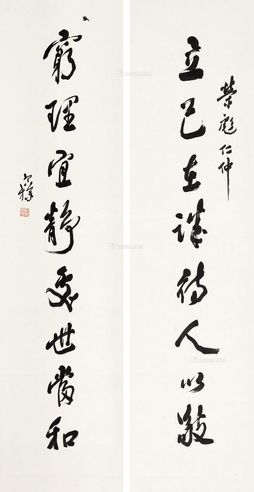 榮彪仁仲
立己在誠待人以敬
窮理宜靜處世當和